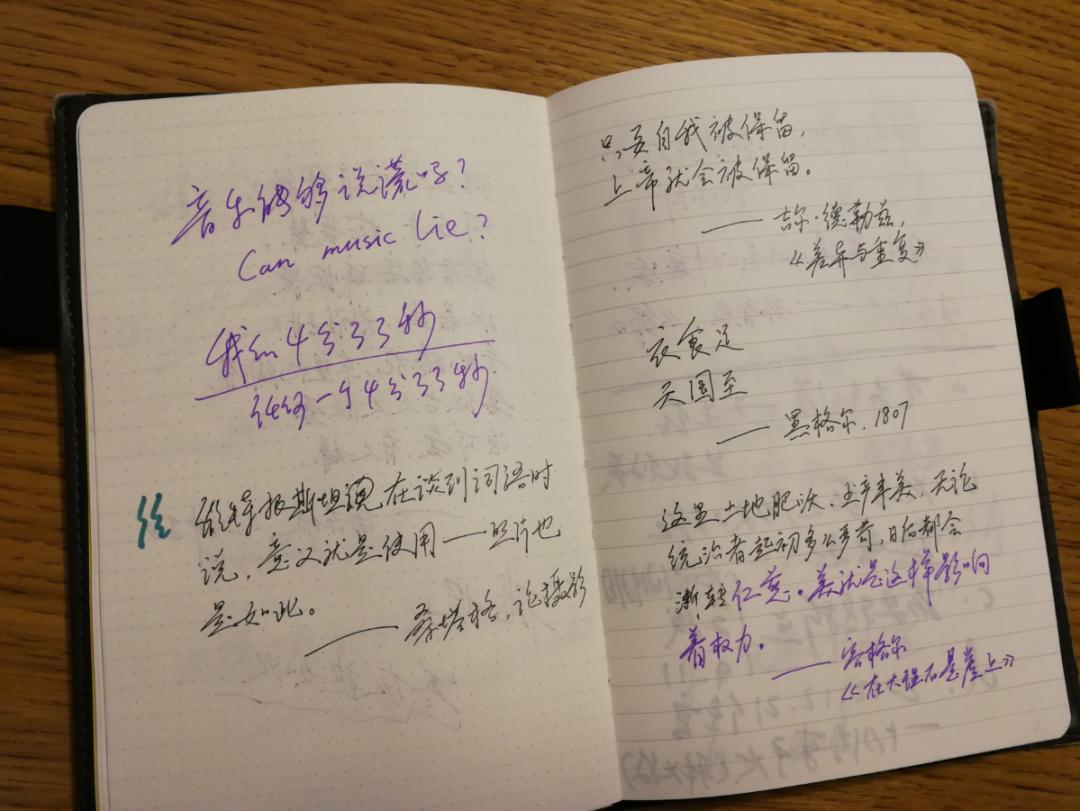 音乐能够说谎吗?
Can music lie?
我的4分33秒
任何一个4分33秒
维特根斯坦在谈到词语时
说,意义就是使用——照片也
是如此。
——桑塔格,论摄影
只要自我被保留,
上帝就会被保留。
——吉尔·德勒兹,
《差异与重复》
衣食足
天国至
——黑格尔,1807
这里土地肥沃,土产丰美,无论
统治者起初多么苛,日后都会
渐转仁慈。美就是这样影响
着权力。
——容格尔
《在大理石悬崖上》